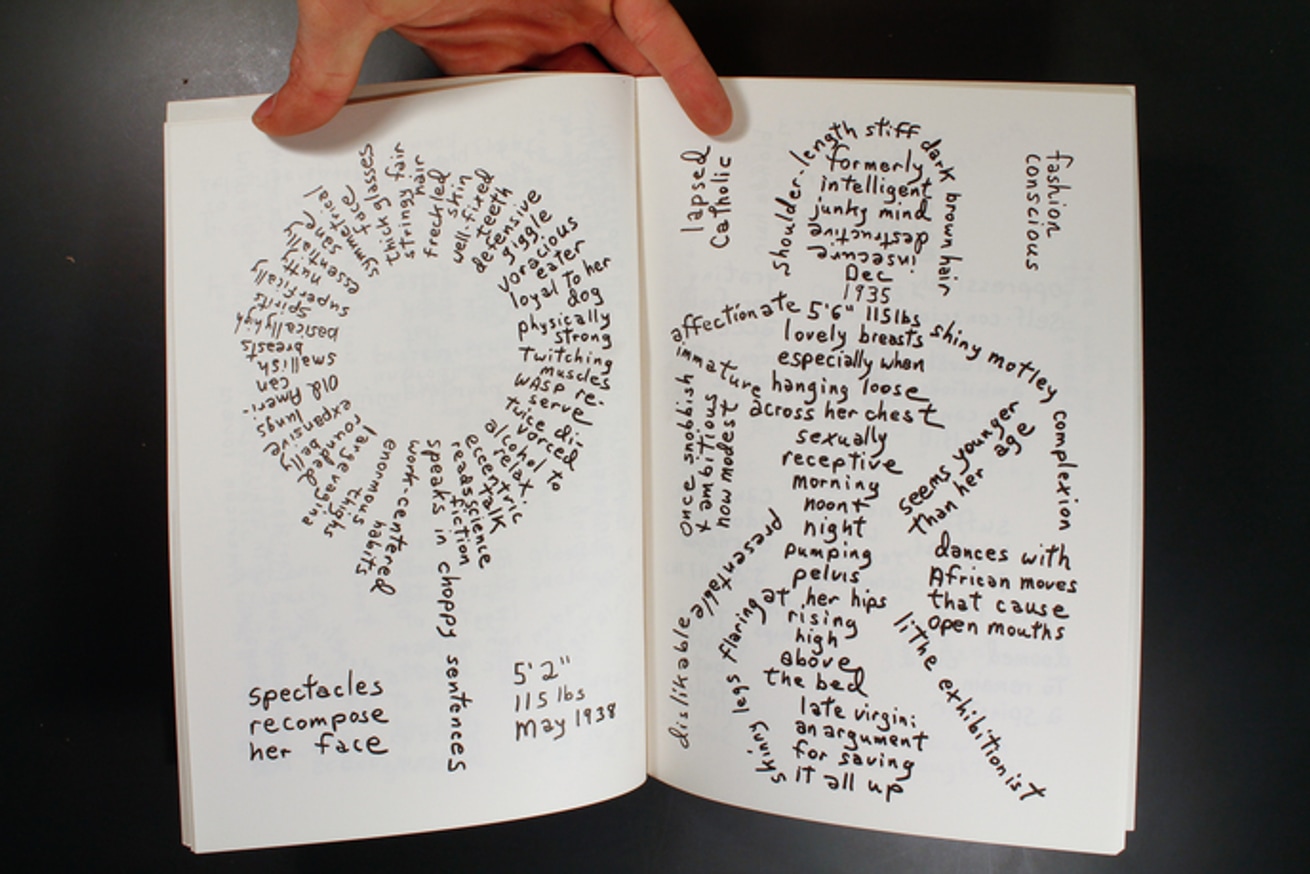 thick glasses
fair
stringy hair
freckled
skin
well-fixed
teeth
defensive
giggle
voracious
eater
loyal to her
dog
physically
strong
twitching
muscles
WASP re-
serve
twice di-
vorced
alcohol to
relax.
eccentric
talk
reads science
fiction
speaks in choppy sentences
work-centered
habits
enormous
thighs
large vagina
rounded
belly
expansive
lungs
Old Ameri-
can
smallish
breasts
basically high
spirits
superfically
nutty
essentially
sane
symmetrical
face
spectacles
recompose
her face
5'2"
115 lbs
May 1938
lapsed
Catholic
shoulder-length stiff dark brown hair
formerly
intelligent
junky mind
destructive
insecure
Dec
1935
fashion
conscious
affectionate
5'6" 115lbs
lovely breasts
especially when
hanging loose
across her chest
shiny motley complexion
immature
once snobbish
+ ambitious
now modest
sexually
receptive
morning
noon+
night
pumping
pelvis
at her hips
rising
high
above
the bed
late virgin:
an argument
for saving
it all up
seems younger
than her age
presentable
dislikable
skinny legs flaring
dances with
African moves
that cause
open mouths
lithe exhibitionist